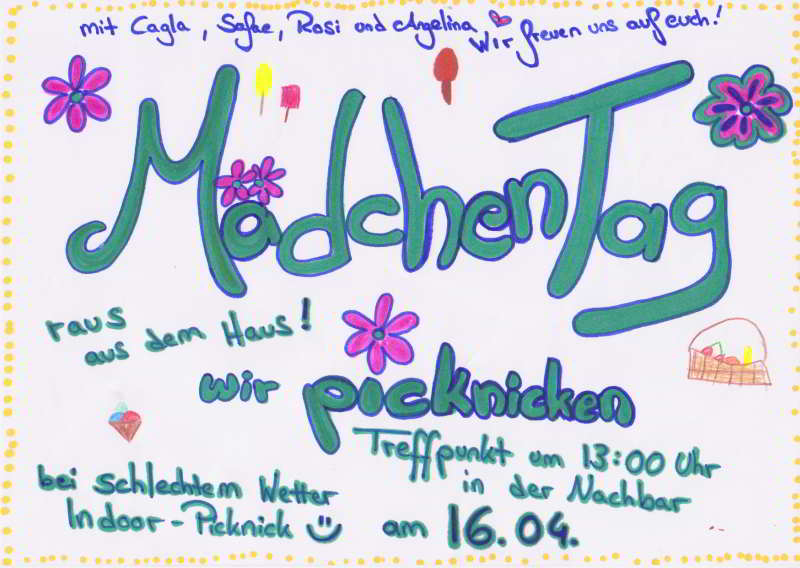 mit Cagla, Safae, Rosi und Angelina
Wir freuen uns auf euch!
MädchenTag
raus
aus dem Haus!
wir picknicken
Treffpunkt um 13:00 Uhr
in der Nachbar
bei schlechtem Wetter
Indoor-Picknick
am 16.04.